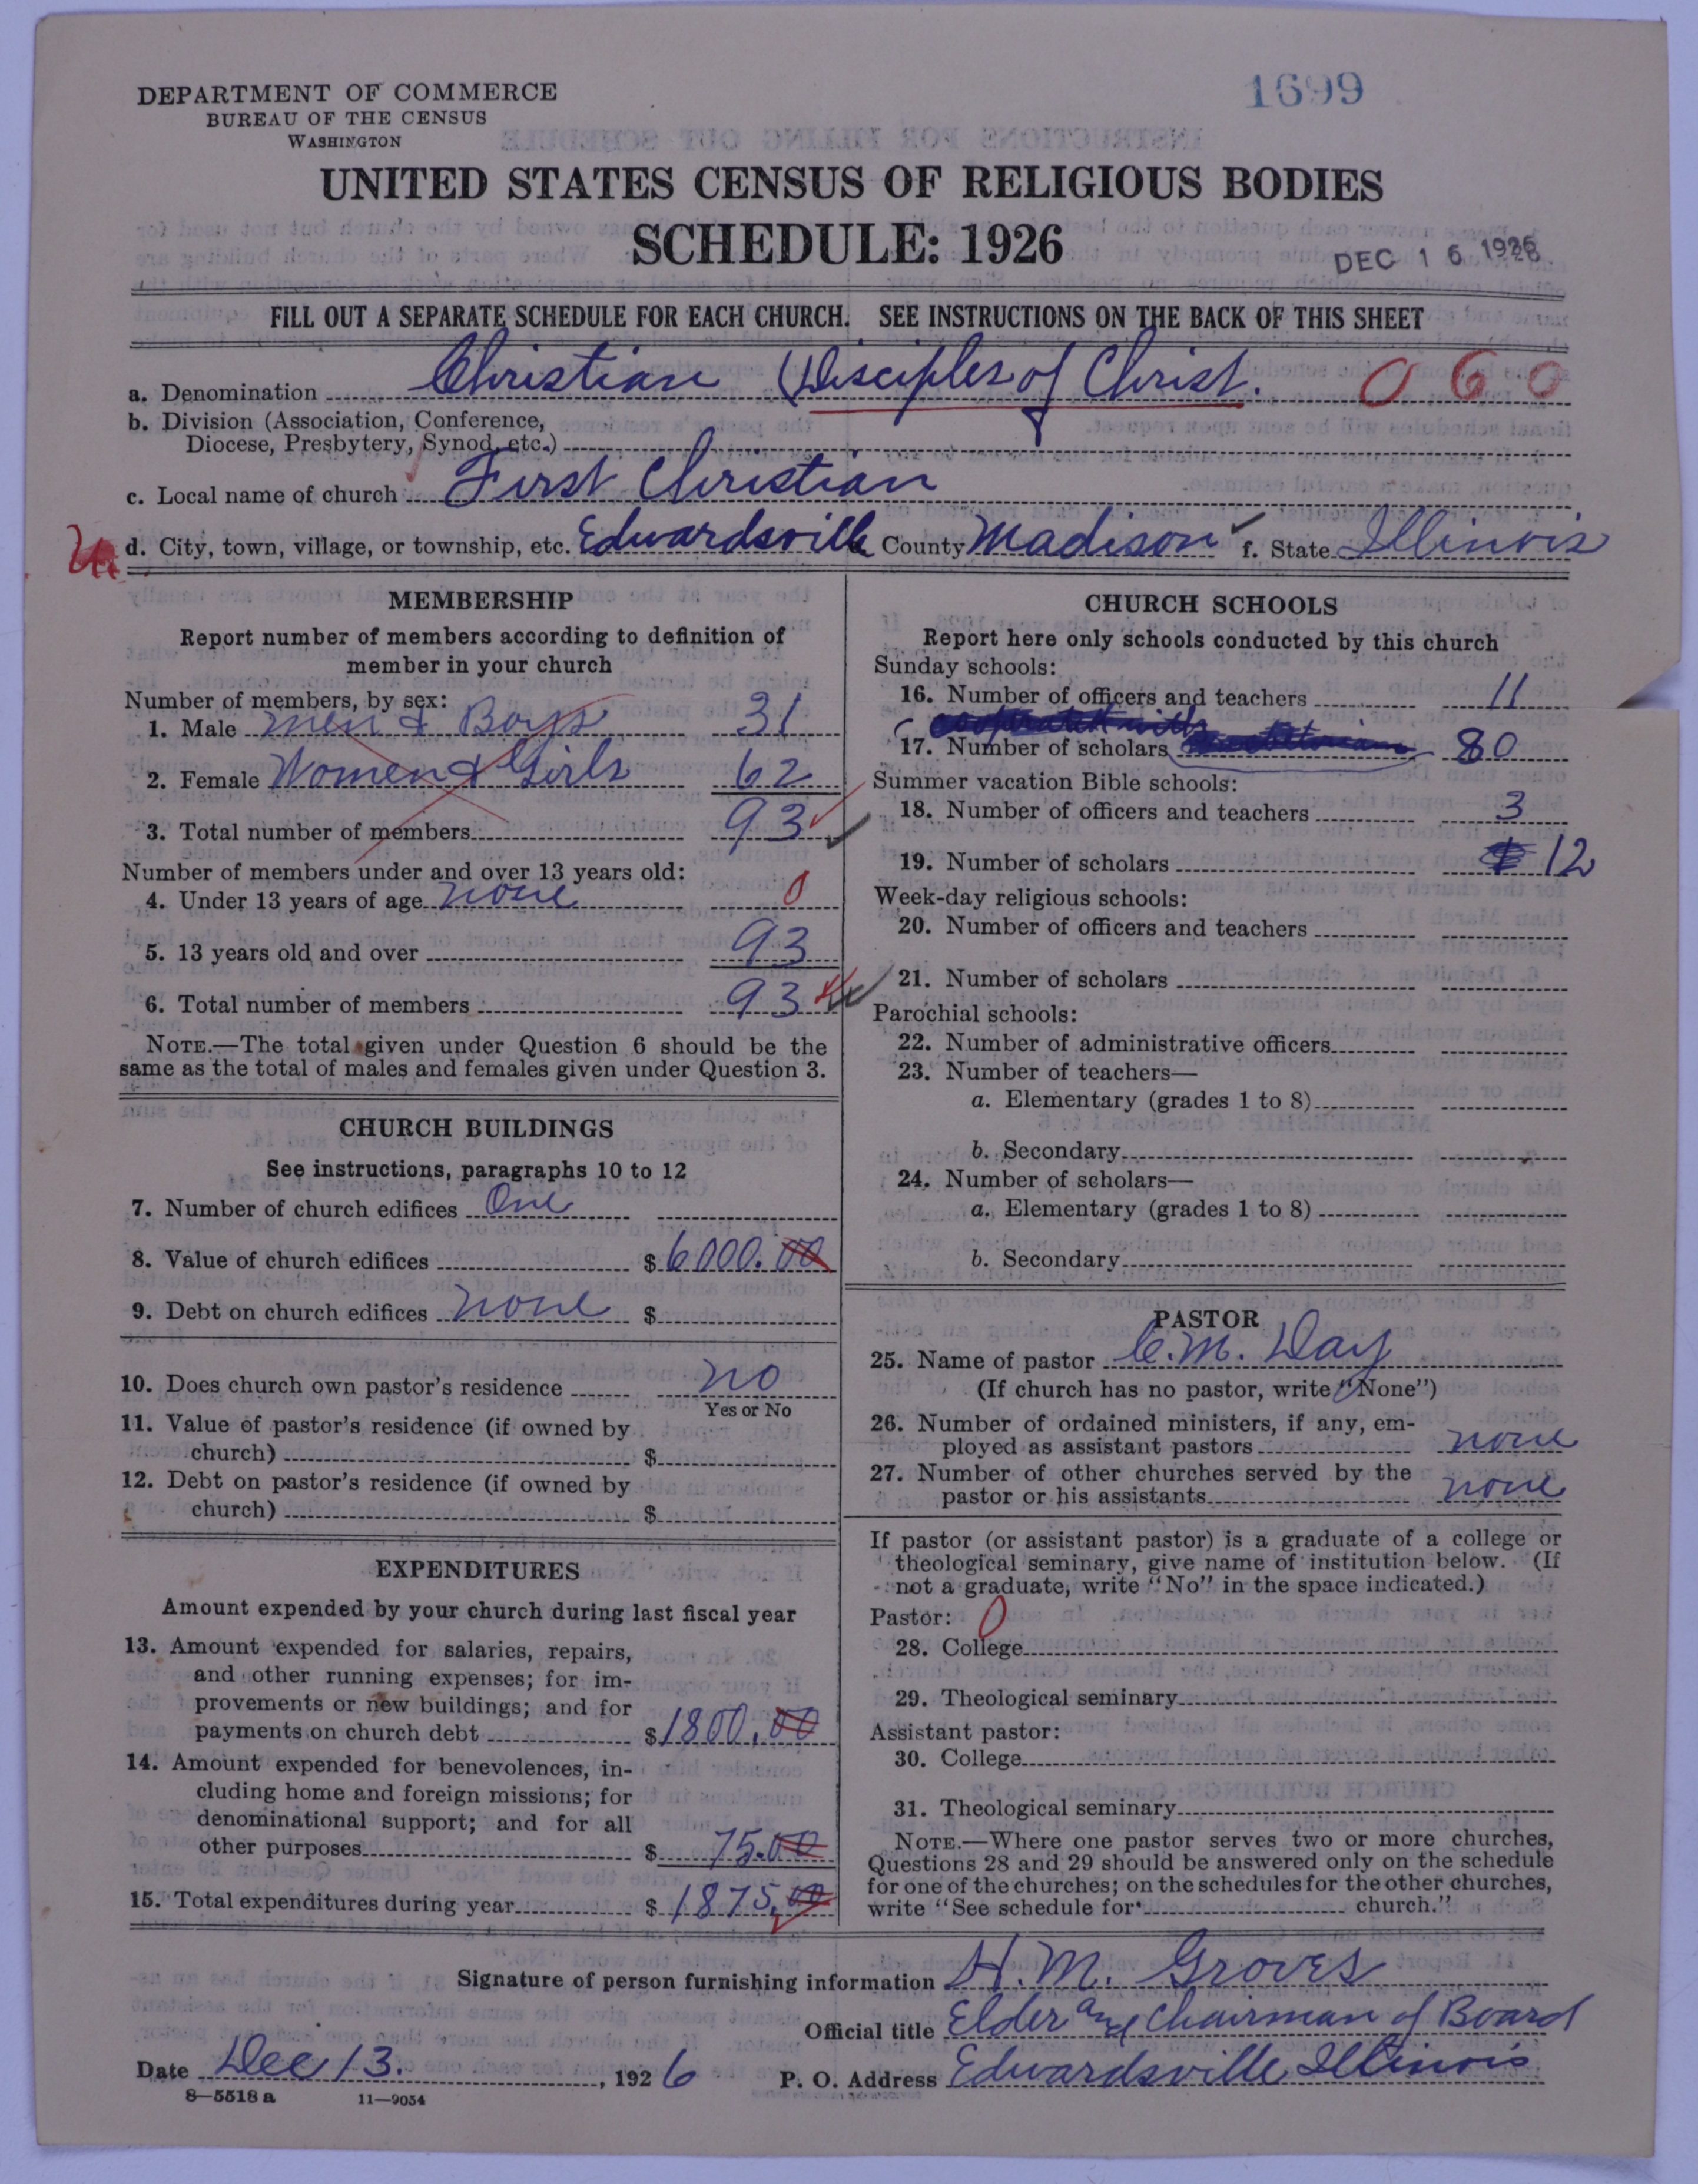 1699
DEPARTMENT OF COMMERCE
BUREAU OF THE CENSUS
WASHINGTON
UNITED STATES CENSUS OF RELIGIOUS BODIES
SCHEDULE: 1926
DEC 16 1926
FILL OUT A SEPARATE SCHEDULE FOR EACH CHURCH. SEE INSTRUCTIONS ON THE BACK OF THIS SHEET
a. Denomination Christian (Disciples of Christ. 060
b. Division (Association, Conference,
Diocese, Presbytery, Synod, etc.)
c. Local name of church First Christian
d. City, town, village, or township, etc. Edwardsville County Madison f. State Illinois
MEMBERSHIP
Report number of members according to definition of
member in your church
Number of members, by sex:
1. Male Men & Boys 31
2. Female Women & Girls 62
3. Total number of members 93
Number of members under and over 13 years old:
4. Under 13 years of age none 0
5. 13 years old and over 93
6. Total number of members 93
NOTE.—The total given under Question 6 should be the
same as the total of males and females given under Question 3.
CHURCH BUILDINGS
See instructions, paragraphs 10 to 12
7. Number of church edifices One
8. Value of church edifices $ 6000.00
9. Debt on church edifices none $
10. Does church own pastor's residence no
Yes or No
11. Value of pastor's residence (if owned by
church) $
12. Debt on pastor's residence (if owned by
church) $
EXPENDITURES
Amount expended by your church during last fiscal year
13. Amount expended for salaries, repairs,
and other running expenses; for im-
provements or new buildings; and for
payments on church debt $ 1800.00
14. Amount expended for benevolences, in-
cluding home and foreign missions; for
denominational support; and for all
other purposes $ 75.00
15. Total expenditures during year $ 1875.00
CHURCH SCHOOLS
Report here only schools conducted by this church
Sunday schools:
16. Number of officers and teachers 11
17. Number of scholars 80
Summer vacation Bible schools:
18. Number of officers and teachers 3
19. Number of scholars 12
Week-day religious schools:
20. Number of officers and teachers
21. Number of scholars
Parochial schools:
22. Number of administrative officers
23. Number of teachers—
a. Elementary (grades 1 to 8)
b. Secondary
24. Number of scholars—
a. Elementary (grades 1 to 8)
b. Secondary
PASTOR
25. Name of pastor C. M. Day
(If church has no pastor, write "None")
26. Number of ordained ministers, if any, em-
ployed as assistant pastors none
27. Number of other churches served by the
pastor or his assistants none
If pastor (or assistant pastor) is a graduate of a college or
theological seminary, give name of institution below. (If
not a graduate, write "No" in the space indicated.)
Pastor: 0
28. College
29. Theological seminary
Assistant pastor:
30. College
31. Theological seminary
NOTE.—Where one pastor serves two or more churches,
Questions 28 and 29 should be answered only on the schedule
for one of the churches; on the schedules for the other churches,
write "See schedule for church."
Signature of person furnishing information H. M. Groves
Official title Elder and Chairman of Board
Date Dec 13. , 1926 P. O. Address Edwardsville Illinois
8—5518 a 11—9054